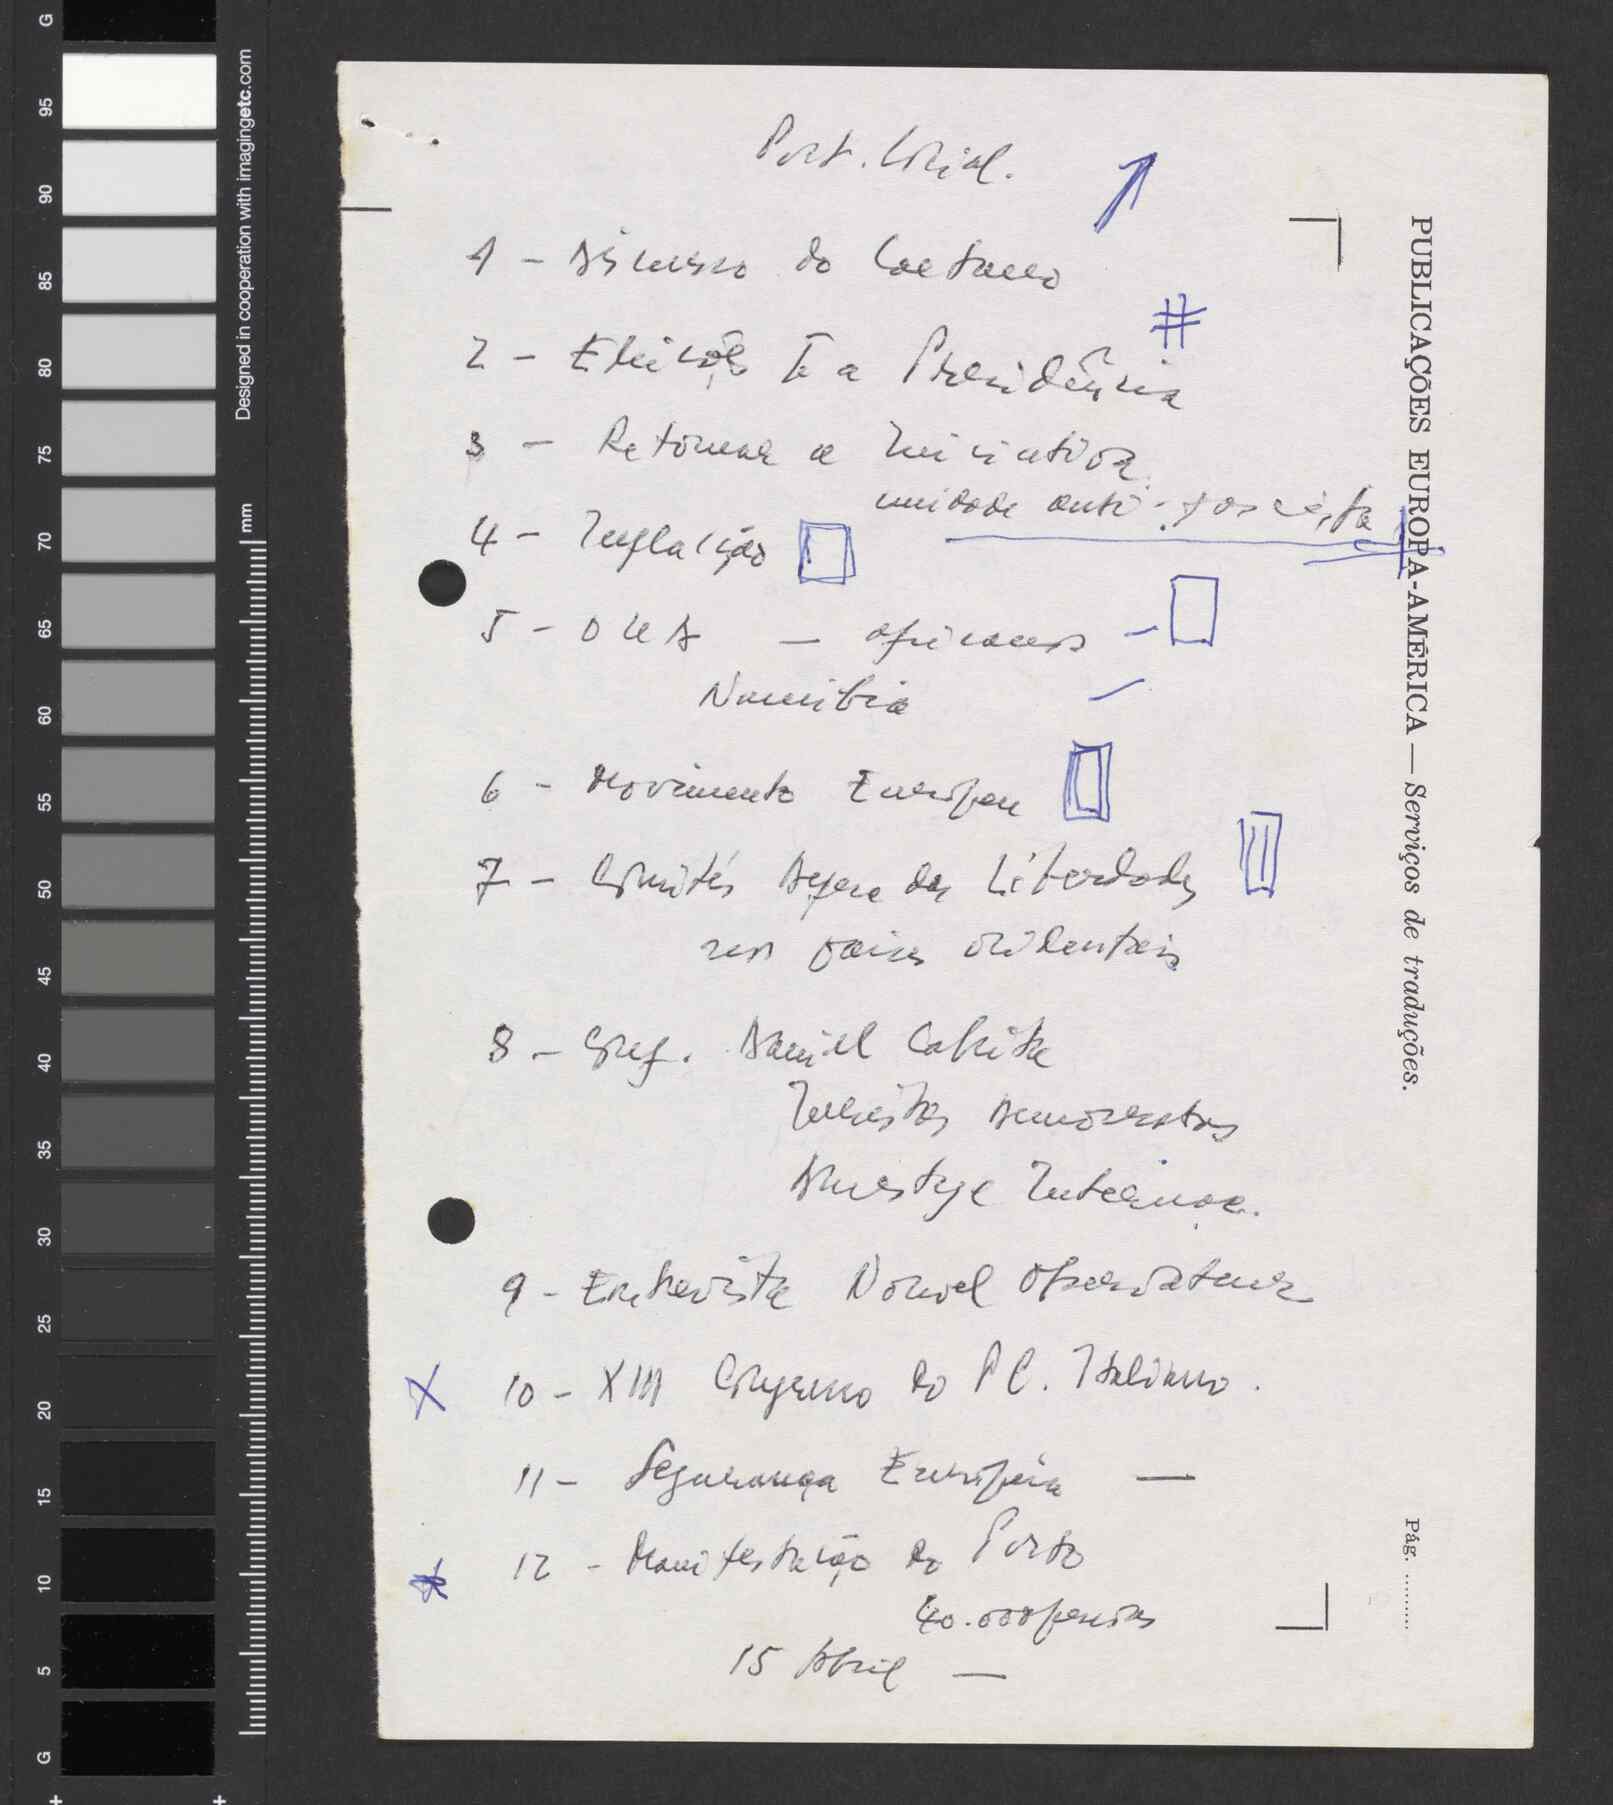 Port. Social.
1 - Discurso do Caetano
2 - Eleições p.a a Presidência
3 - Retomar a Iniciativa
unidade anti-fascista
4 - Inflacção
5 - OUA — africanos -
Namibia
6 - Movimento Europeu
7 - Comités Defesa das Liberdades
nos paises ocidentais
8 - Daniel Cabrita
Juristas Democratas
Amnistye Internac.
9 - Entrevista Nouvel Observateur
X 10 - XIII Congresso do P C. Italiano.
11 - Segurança Européia —
12 - Manifestação do Porto
40.000 pessoas
15 Abril —
PUBLICAÇÕES EUROPA-AMÉRICA — Serviços de traduções.
Pág. .........
Designed in cooperation with imagingetc.com
mm
G
95
90
85
80
75
70
65
60
55
50
45
40
35
30
25
20
15
10
5
G